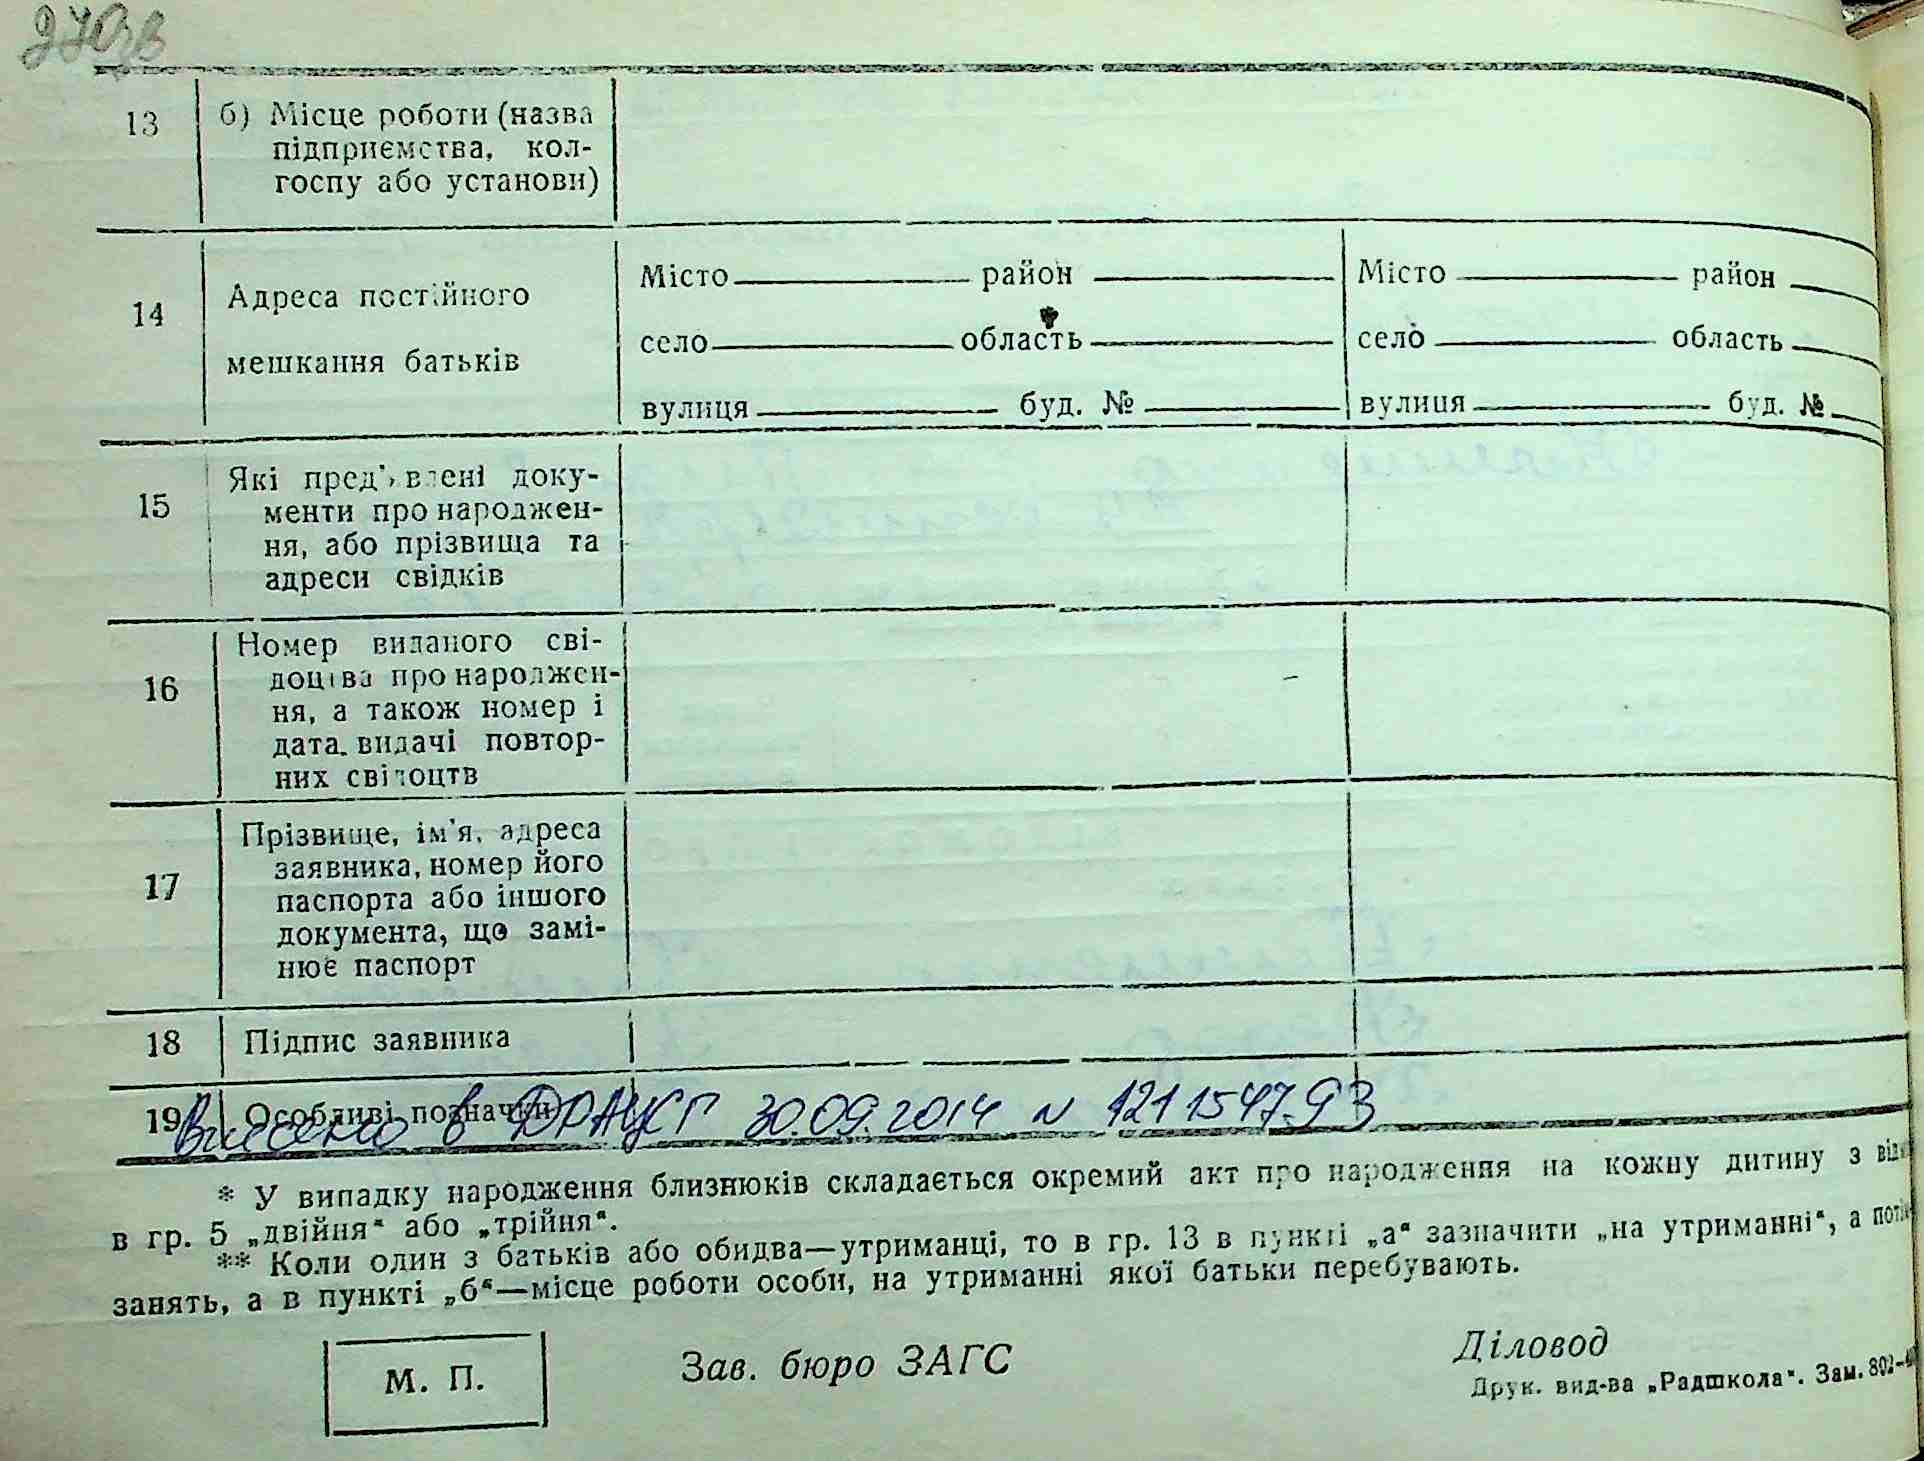 270зв
13 б) Місце роботи (назва
підприємства, кол-
госпу або установи)
14 Адреса постійного
мешкання батьків
Місто район Місто район
село область село область
вулиця буд. № вулиця буд. №
15 Які пред'явлені доку-
менти про народжен-
ня, або прізвища та
адреси свідків
16 Номер виданого сві-
доцтва про народжен-
ня, а також номер і
дата видачі повтор-
них свідоцтв
17 Прізвище, ім'я, адреса
заявника, номер його
паспорта або іншого
документа, що замі-
нює паспорт
18 Підпис заявника
19 Особливі позначки
Внесено в ДРАЦСГ 30.09.2014 N 121154793
* У випадку народження близнюків складається окремий акт про народження на кожну дитину з
в гр. 5 „двійня“ або „трійня“.
** Коли один з батьків або обидва—утриманці, то в гр. 13 в пункті „а“ зазначити „на утриманні“, а
занять, а в пункті „б“—місце роботи особи, на утриманні якої батьки перебувають.
М. П. Зав. бюро ЗАГС Діловод
Друк. вид-ва „Радшкола“. Зам. 802-